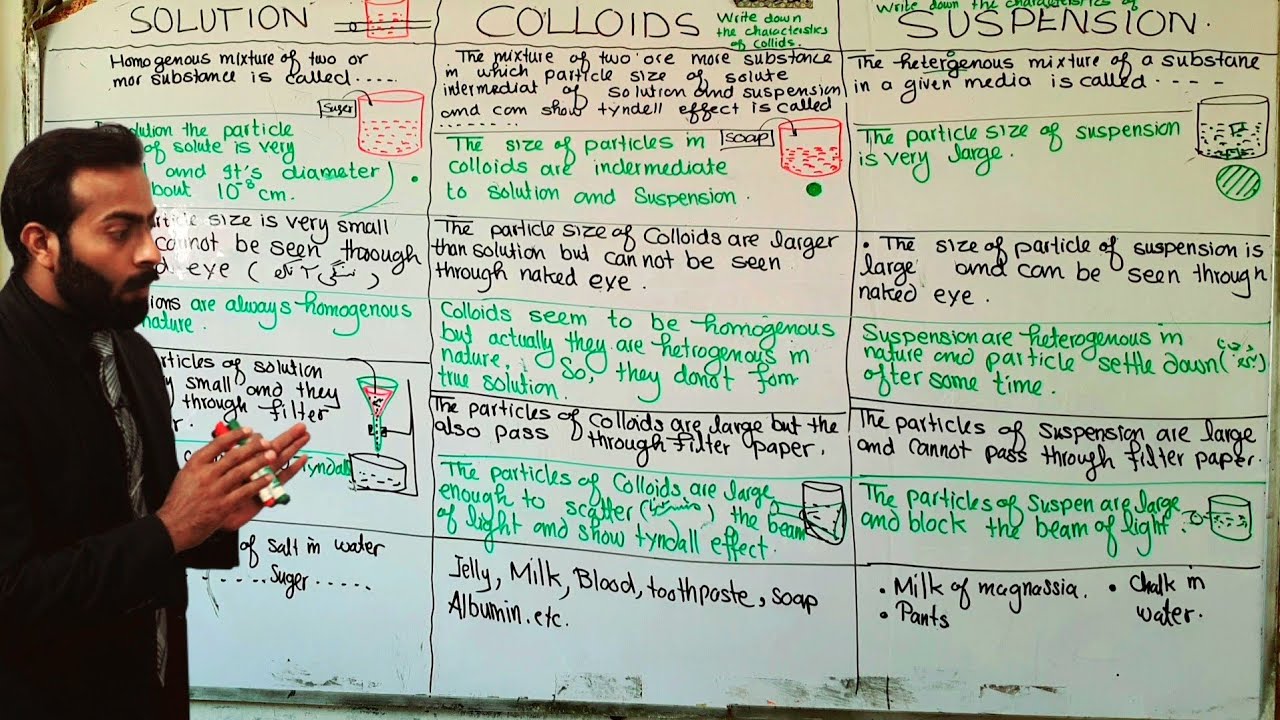 SOLUTION
Homogenous mixture of two or
mor substance is called.....
Suger
solution the particle
of solute is very
and It's diameter
bout 10⁻⁸cm.
size is very small
cannot be seen through
eye (
ions are always homogenous
nature.
rticles of solution
small and they
through filter
r.
tyndall
of salt in water
Suger .....
COLLOIDS
Write down
the characteristics
of Collids.
The mixture of two ore more substance
in which particle size of solute
intermediat of solution and suspension
and can show tyndell effect is called
........
soap
The size of particles in
colloids are indermediate
to solution and Suspension.
The particle size of Colloids are larger
than solution but can not be seen
through naked eye.
Colloids seem to be homogenous
but actually they are hetrogenous in
nature. So, they donot form
true solution.
The particles of Colloids are large but the
also pass through filter paper.
The particles of Colloids are large
enough to scatter ( ) the beam
of light and show tyndall effect.
Jelly, Milk, Blood, toothpaste, soap
Albumin. etc.
Write down the characteristics of
SUSPENSION.
The hetergenous mixture of a substane
in a given media is called - - - -
The particle size of suspension
is very large.
• The size of particle of suspension is
large and can be seen through
naked eye.
Suspension are heterogenous in
nature and particle settle down (
after some time.
The particles of suspension are large
and cannot pass through filter paper.
The particles of Suspen are large
and block the beam of light.
• Milk of magnassia. • Chalk in
• Pants water.